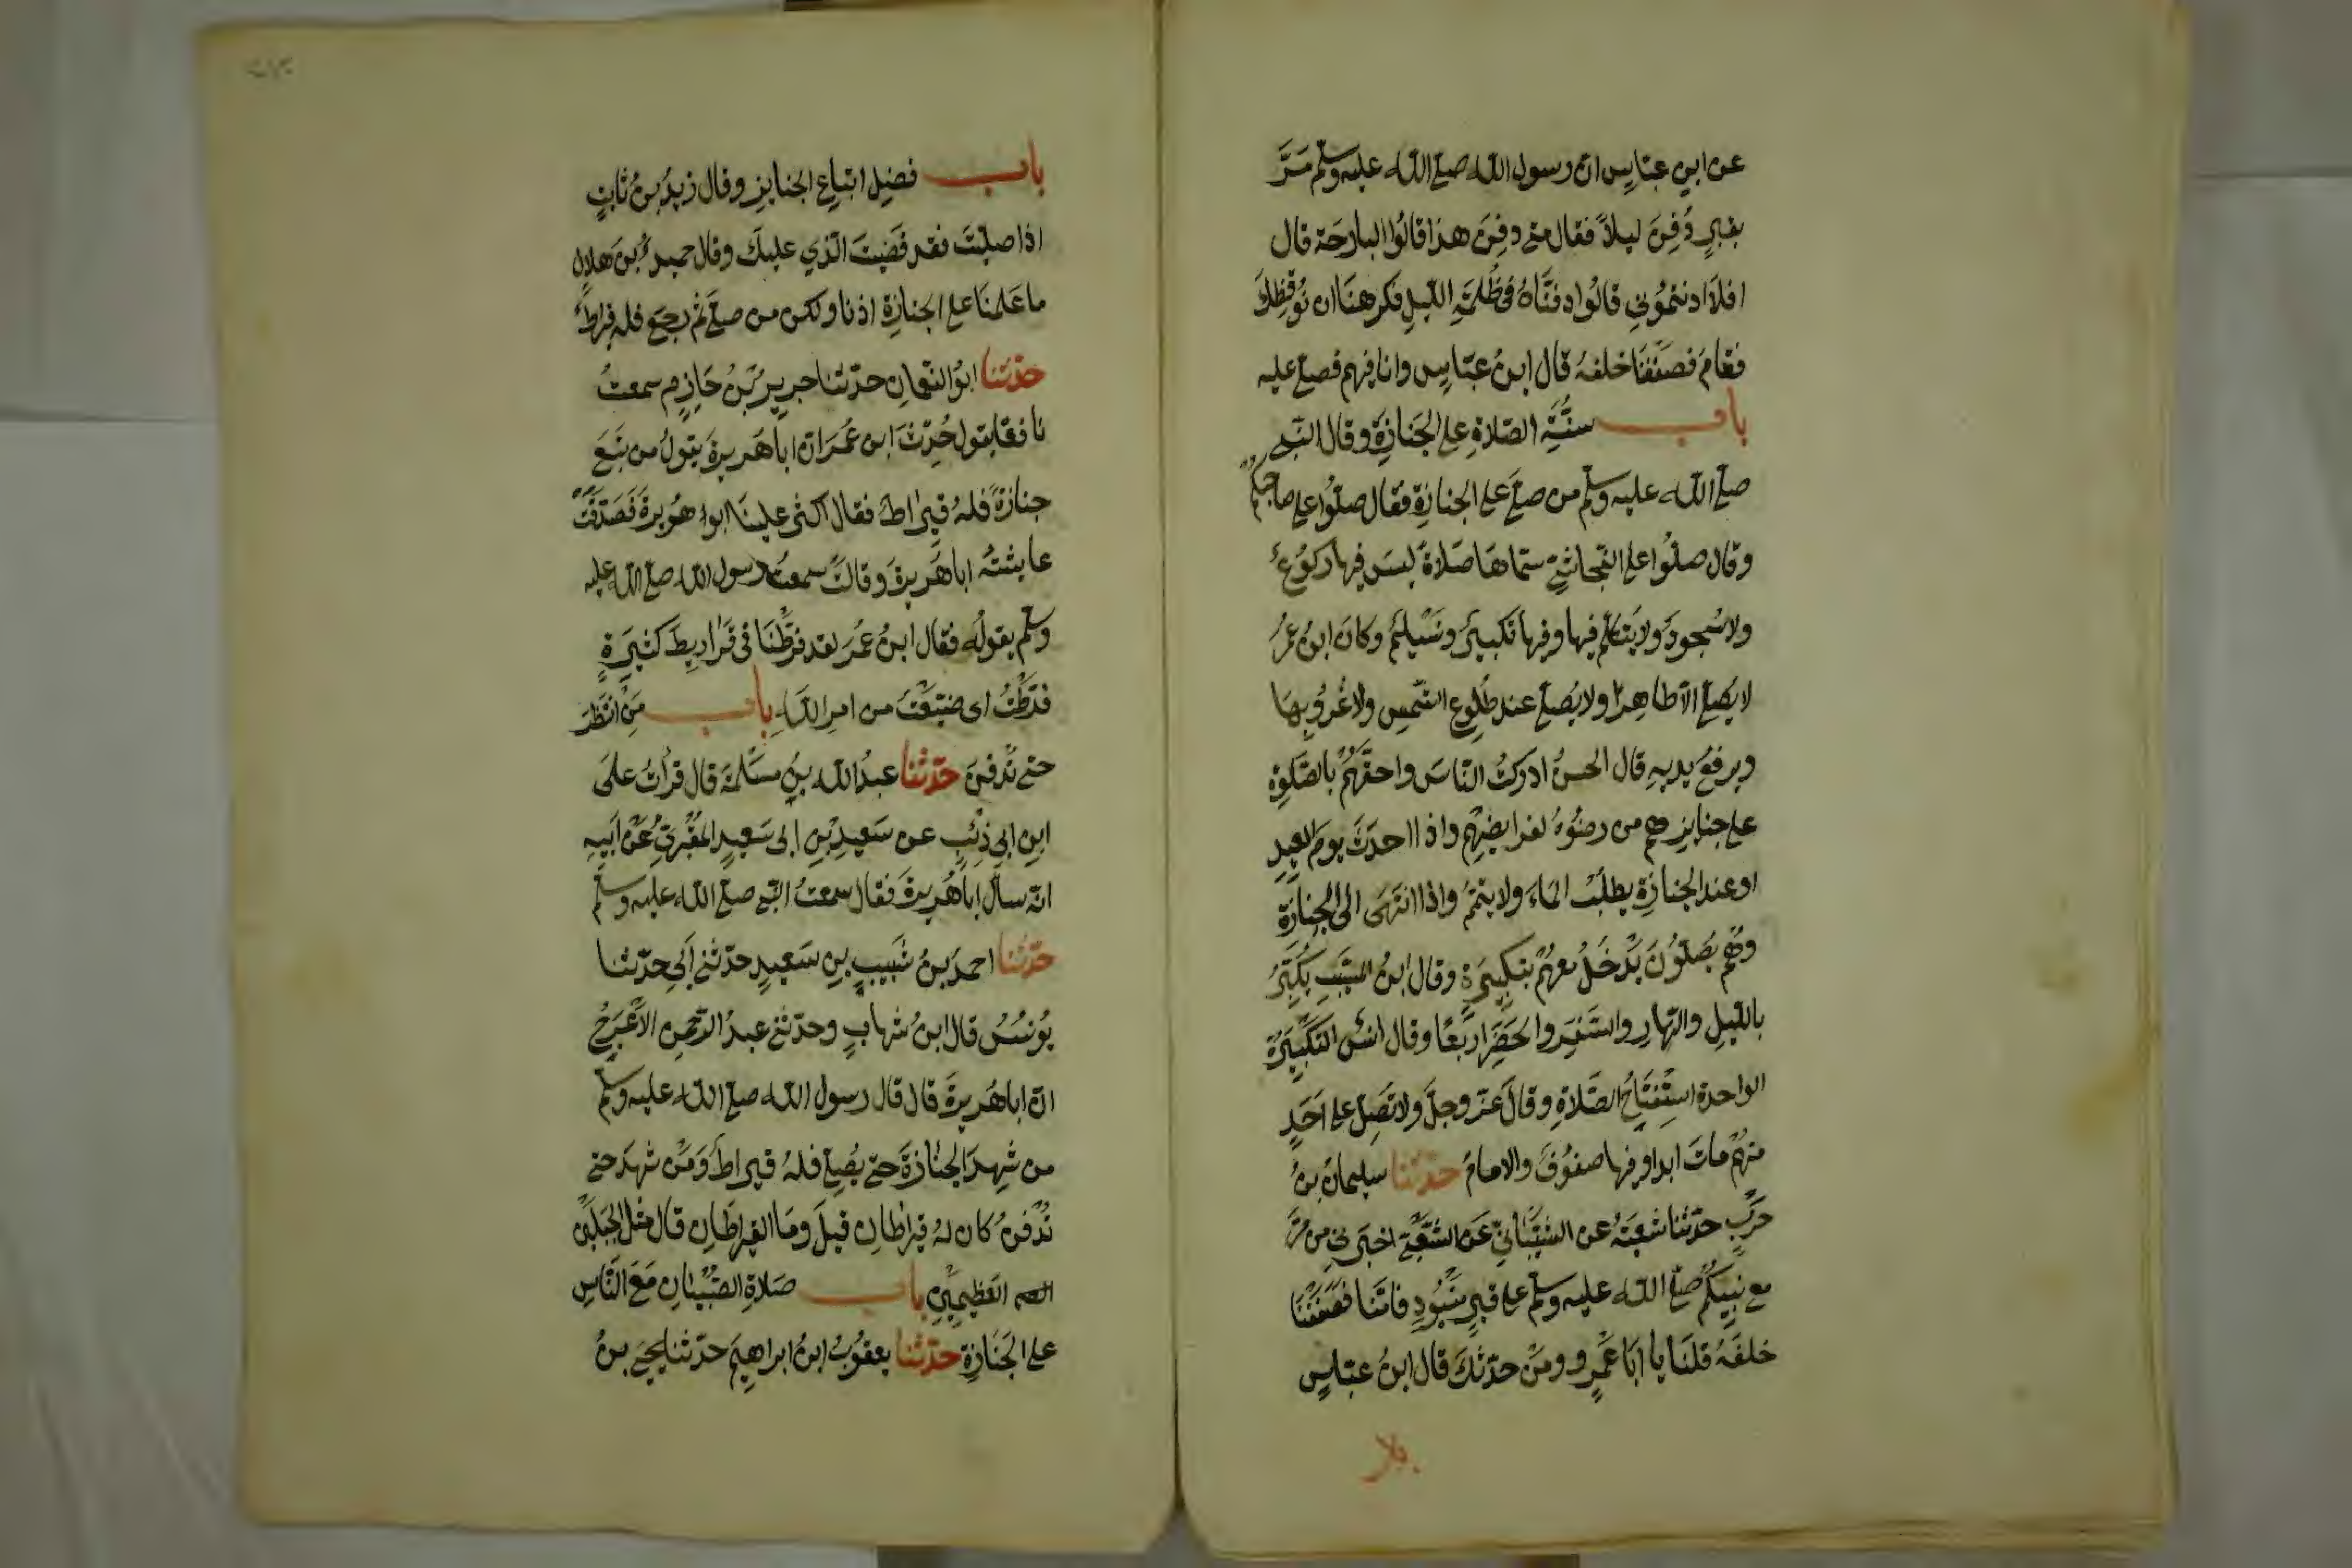 عن ابنِ عبّاسٍ انّ رسول اللّه صلّى اللّه عليه وسلّم مَرَّ
بقبرٍ دُفِنَ ليلاً فقال متى دفِنَ هذا قالُوا البارحَة قال
افلا اذنتمُوني قالُوا دفنّاهُ في ظُلمَةِ اللّيلِ فكرهنَا ان نُوقِظكَ
فقامَ فصفَفنَا خلفهُ قال ابنُ عبّاسٍ وانا فيهم فصلّى عليه
باب سنّةِ الصّلاةِ على الجَنازةِ وقال النّبي
صلّى اللّه عليه وسلّم من صلّى على الجنازةِ فقال صلّوا على صاحبكم
وقال صلّوا على النّجاشيّ سمّاهَا صَلاةً ليسَ فيها ركُوعٌ
ولا سُجودٌ ولا يتكلّمُ فيها وفيها تكبيرٌ وتسليمٌ وكانَ ابنُ عمرُ
لا يُصلّي الّا طاهِرًا ولا يُصلّي عند طُلوعِ الشّمسِ ولا غُروبها
ويرفعُ يديهِ قال الحسنُ ادركتُ النّاسَ واحقّهُم بالصّلوةِ
على جنايزهم من رضُوهُ لفرايضِهِم واذا احدَثَ يومَ العِيدِ
او عند الجنازةِ يطلُبُ الماءَ ولا يتيمّمُ واذا انتهَى الى الجِنازَة
وهُم يُصلّونَ يَدْخُلُ معهُم بتكبيرةٍ وقال ابنُ المسيّبِ يكبّرُ
باللّيلِ والنّهارِ والسّفَرِ والحضَرِ اربَعًا وقال انسٌ التكبيرَةُ
الواحدة استِفتاحُ الصّلاةِ وقالَ عزّ وجلّ ولا تُصَلِّ على احَدٍ
منهُم ماتَ ابدا وفيها صفُوفٌ والامامُ حدّثنا سليمانُ بنُ
حربٍ حدّثنا شعبَةُ عن الشّيبانِيِّ عَن الشّعبيّ اخبَرني من مرّ
مع نبيّكُم صلّى اللّه عليه وسلّم على قبرٍ منبُوذٍ فامّنا فصففنَا
خلفَهُ قلنَا يا ابَا عَمرٍو ومَن حدّثكَ قال ابنُ عبّاسٍ
باب فضلِ اتباعِ الجنايزِ وقال زيدُ بنُ ثابتٍ
اذا صليّتَ فقد قَضيتَ الّذي عليكَ وقال حميدُ بنَ هلالٍ
ما عَلمنَا على الجنازةِ اذنا ولكن من صلّى ثم رجعَ فله قيراطٌ
حدّثنا ابُو النّعمانِ حدّثنا جريرُ بنُ حَازمٍ سمعتُ
نافعًا يقول حُدّثَ ابن عُمَرَ انّ ابا هُريرةَ يقولُ من تبِعَ
جنازةً فلهُ قيراطٌ فقال اكثر علينَا ابو هُريرة فَصَدّقَتْ
عايشةُ ابا هُريرةَ وقالت سمعتُ رسول اللّه صلّى اللّه عليه
وسلّم يقولُه فقال ابنُ عُمَرَ لقد فرّطنَا في قَراريطَ كثيرةٍ
فرّطتُ اي ضيّعتُ من امرِ اللّهِ باب مَن انتظَرَ
حتّى تُدفنَ حدّثنا عبدُ اللّه بنُ مسلَمةَ قال قراتُ علَى
ابنِ ابي ذئبٍ عن سَعيدِ بنِ ابي سَعيدٍ المَقبُريِّ عَن ابيهِ
انّه سال ابا هُريرةَ فقال سمعتُ النّبي صلّى اللّه عليه وسلّم
حدّثنا احمدُ بنُ شَبيبِ بنِ سَعيدٍ حدّثني ابي حدّثنا
يُونسُ قال ابنُ شهابٍ وحدّثني عبدُ الرّحمنِ الاَعرجُ
انّ ابا هُريرةَ قال قال رسول اللّه صلّى اللّه عليه وسلّم
من شهِدَ الجنازةَ حتّى يُصلّي فلهُ قيراطٌ وَمَن شهدَ حتّى
تُدفنَ كان لهُ قيراطانِ قيلَ ومَا القيراطانِ قال مثل الجبلَين
العظيمَينِ باب صَلاةِ الصّبيانِ مَعَ النّاسِ
على الجَنازةِ حدّثنا يعقوبُ ابنُ ابراهيمَ حدّثنا يحيى بنُ